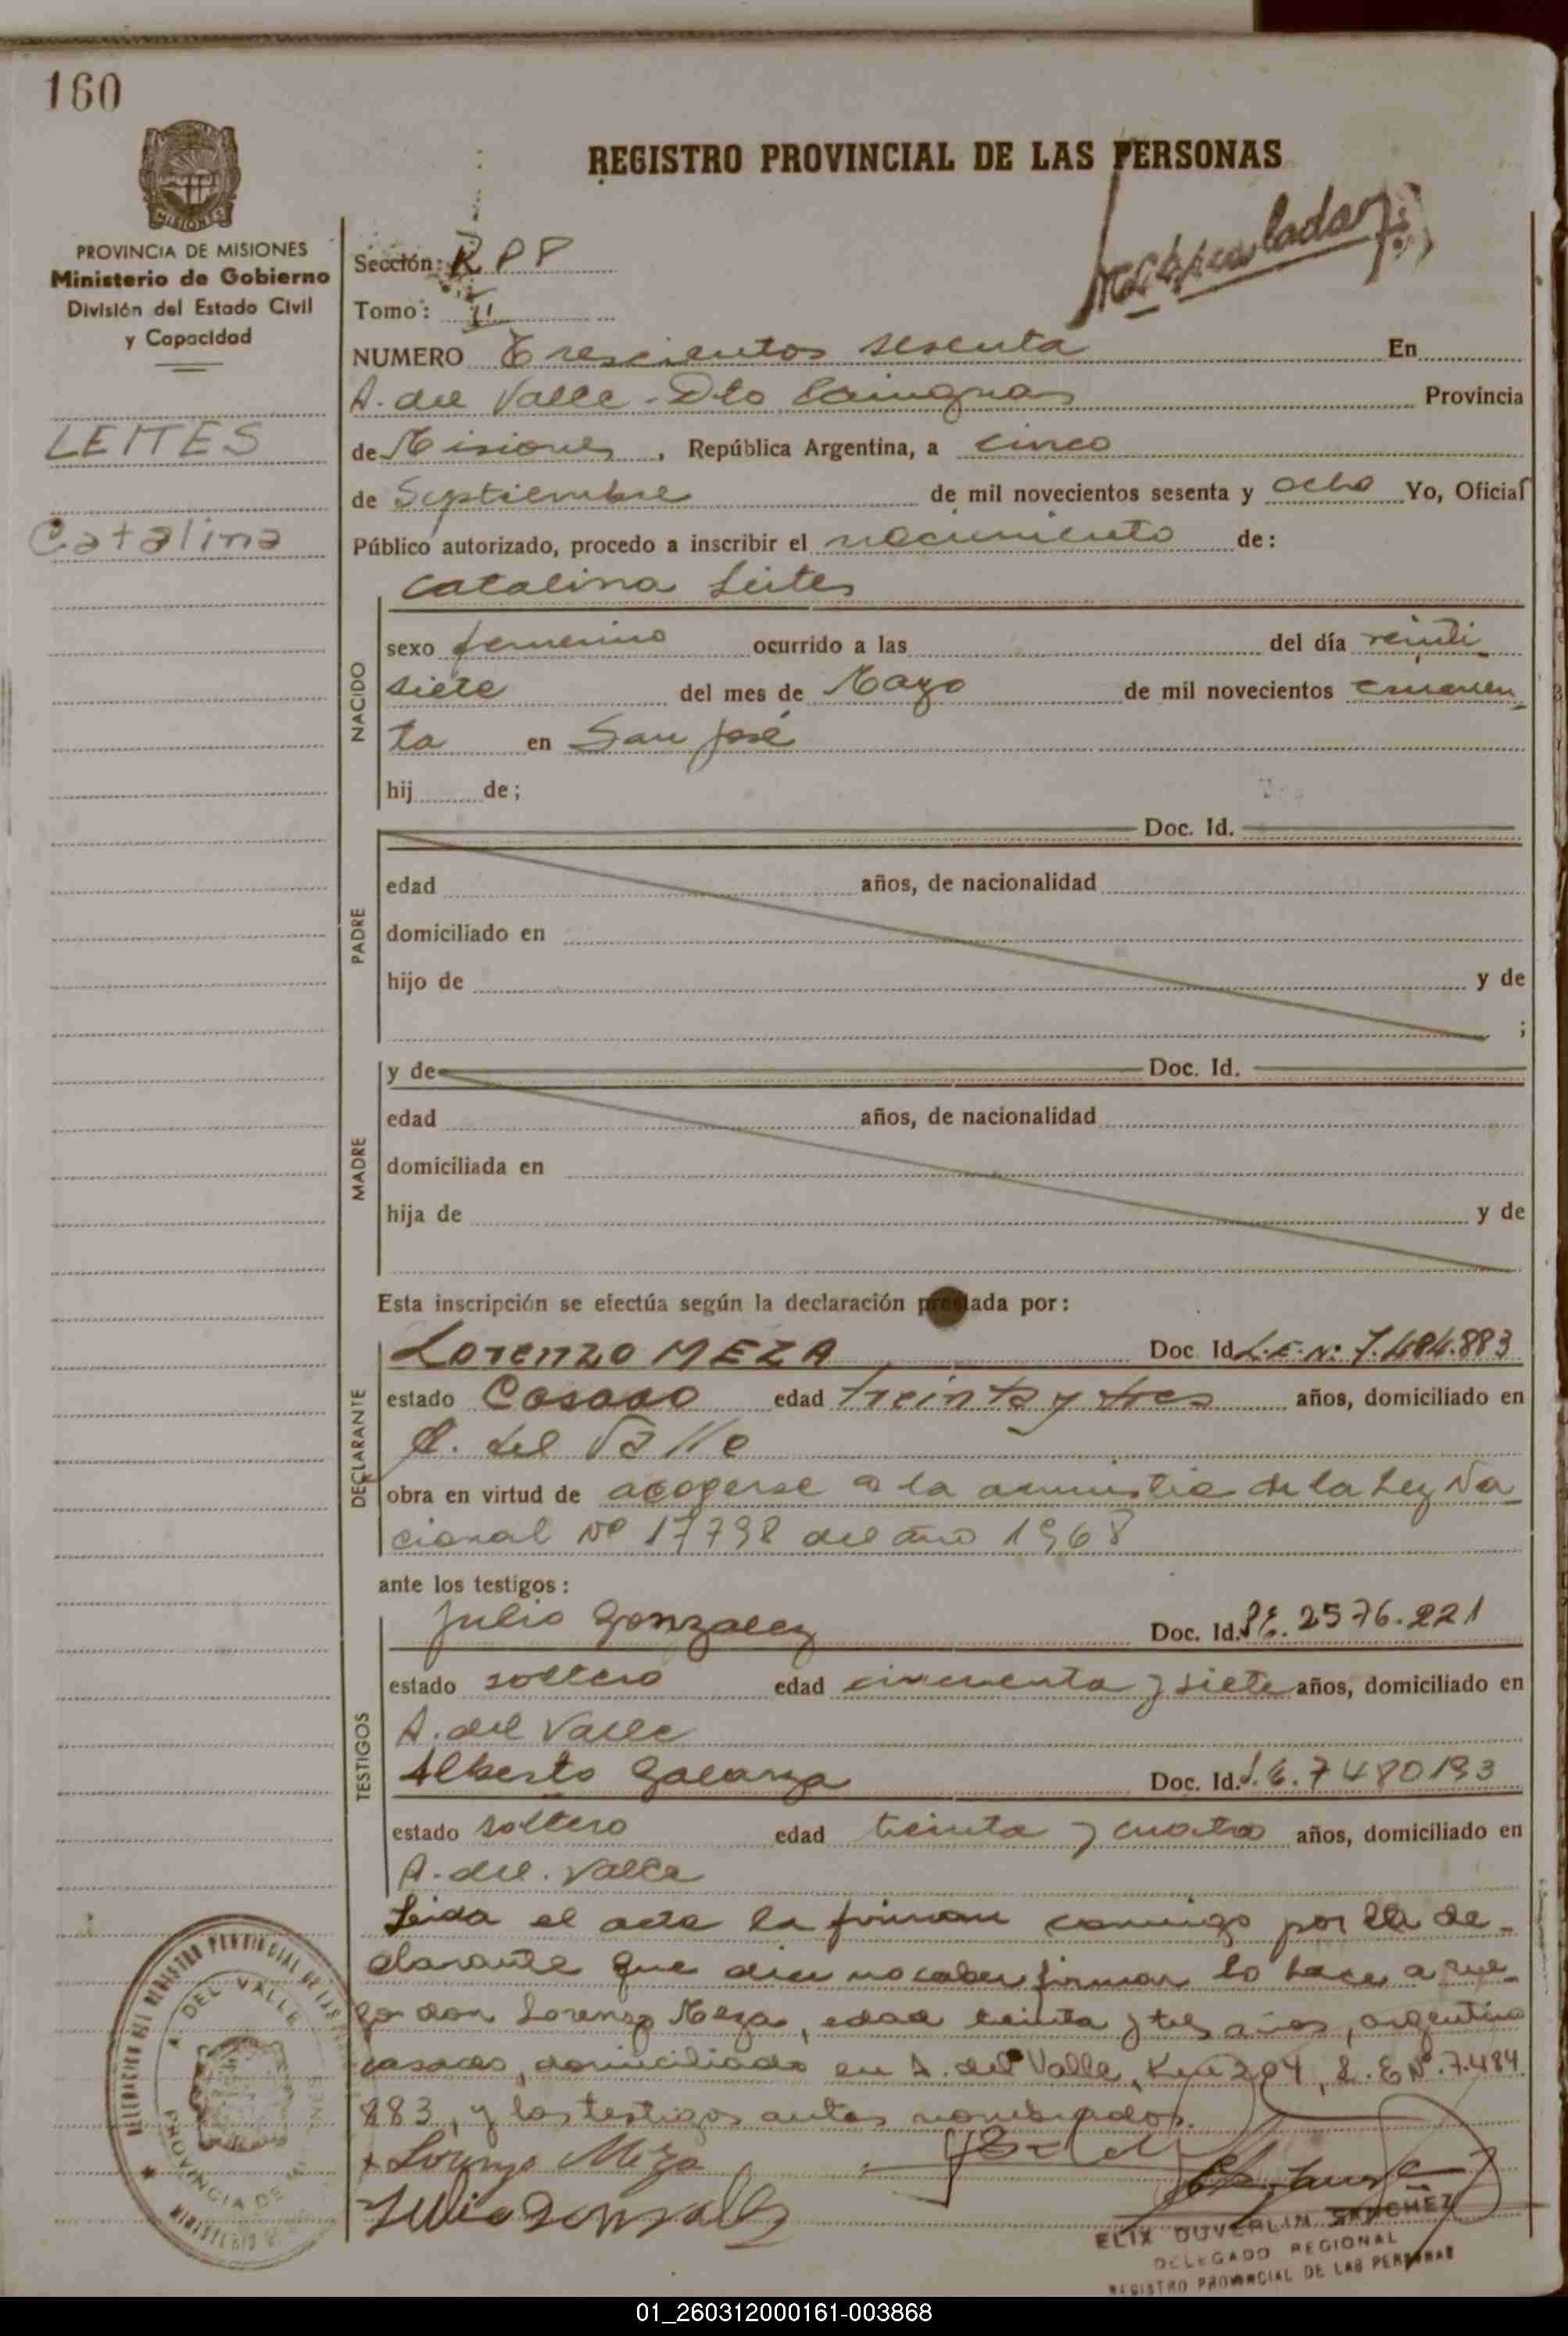 160
REGISTRO PROVINCIAL DE LAS PERSONAS
MISIONES
PROVINCIA DE MISIONES
Ministerio de Gobierno
División del Estado Civil
y Capacidad
LEITES
Catalina
Sección: R P P
Tomo: II
NUMERO Trescientos sesenta En
A. del Valle - Dto Cainguas Provincia
de Misiones, República Argentina, a cinco
de Septiembre de mil novecientos sesenta y ocho Yo, Oficial
Público autorizado, procedo a inscribir el nacimiento de:
Catalina Leites
NACIDO
sexo femenino ocurrido a las del día veinti
siete del mes de Mayo de mil novecientos cuaren
ta en San José
hij de;
PADRE
Doc. Id.
edad años, de nacionalidad
domiciliado en
hijo de y de
;
MADRE
y de Doc. Id.
edad años, de nacionalidad
domiciliada en
hija de y de
Esta inscripción se efectúa según la declaración prestada por:
DECLARANTE
Lorenzo MEZA Doc Id L.E. Nº 7.484.883
estado Casado edad treinta y tres años, domiciliado en
A. del Valle
obra en virtud de acogerse a la amnistia de la Ley Na
cional Nº 17798 del año 1968
ante los testigos:
TESTIGOS
Julio Gonzalez Doc. Id. L.E. 2576.221
estado soltero edad cincuenta y siete años, domiciliado en
A. del Valle
Alberto Galarza Doc. Id. L.E. 7480193
estado soltero edad treinta y cuatro años, domiciliado en
A. del. Valle
Leida el acta la firman conmigo por la de-
clarante que dice no saber firmar lo hace a rue-
go don Lorenzo Meza, edad treinta y tres años, argentino
casado, domiciliado en A. del Valle, Km 204, L.E Nº.7.484
883, y los testigos antes nombrados.
Lorenzo Meza
Julio Gonzalez
ELIX DUVERLIN SANCHEZ
DELEGADO REGIONAL
REGISTRO PROVINCIAL DE LAS PERSONAS
A. DEL VALLE
PROVINCIA DE
01_260312000161-003868